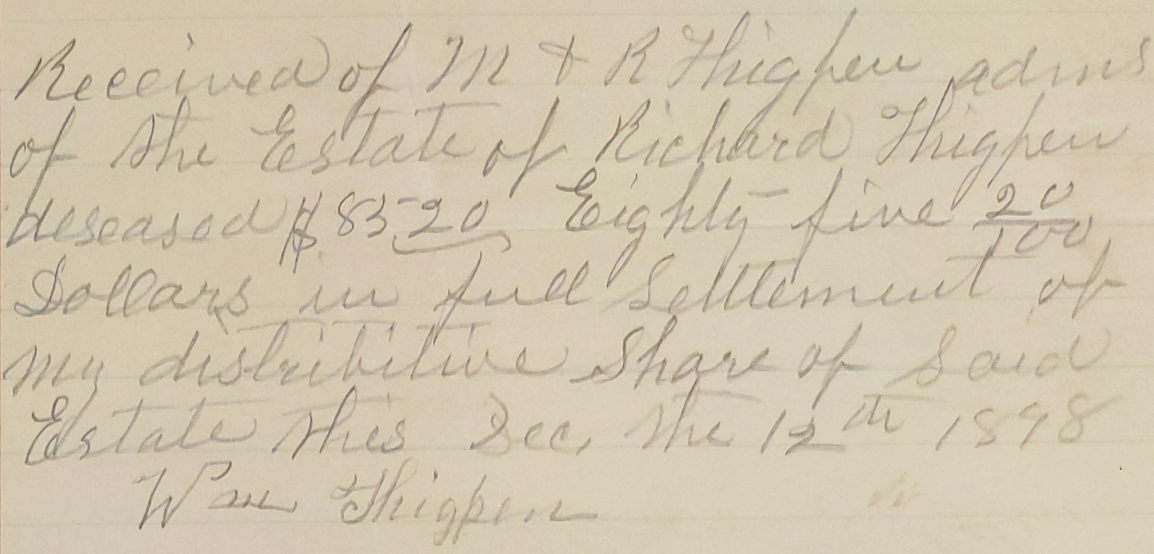 Received of M & R Thigpen adms
of the Estate of Richard Thigpen
deseased $85.20 Eighty five 20/100
Dollars in full Settlement of
my distribitive Share of Said
Estate this Dec. the 12th 1898
Wm Thigpen